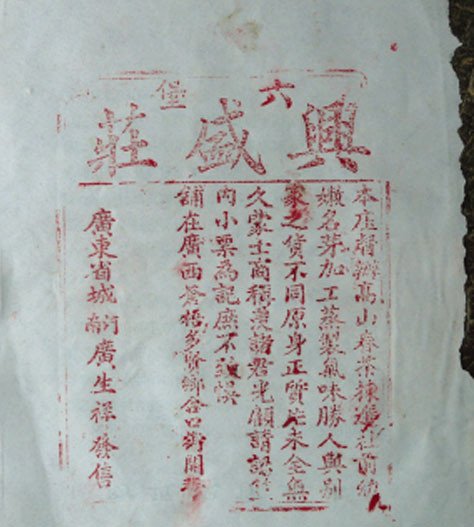 六堡
興盛莊
本庄督辦高山春茶揀選社前幼
嫩名芽加工蒸製氣味勝人與別
家之貨不同原身正質
久蒙士商稱美諸君光顧請認
內小票為記庶不致悞
舖在廣西蒼梧多賢鄉合口街開
廣東省城河南廣生祥發信